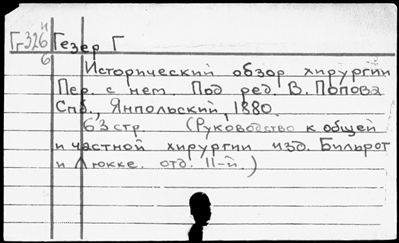 и
Г-326 Гезер Г
б
Исторический обзор хирургии
Пер. с нем. Под ред. В. Попова
Спб., Янпольский, 1880.
63 стр. (Руководство к общей
и частной хирургии изд. Бильрот
и Люкке. отд. II-й.)